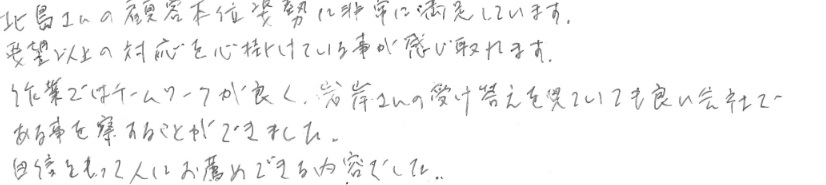 北島さんの顧客本位姿勢に非常に満足しています.
要望以上の対応を心掛けている事が感じ取れます.
作業ではチームワークが良く、岩岸さんの受け答えを見ていても良い会社で
ある事を察することができました。
自信をもって人にお薦めできる内容でした..